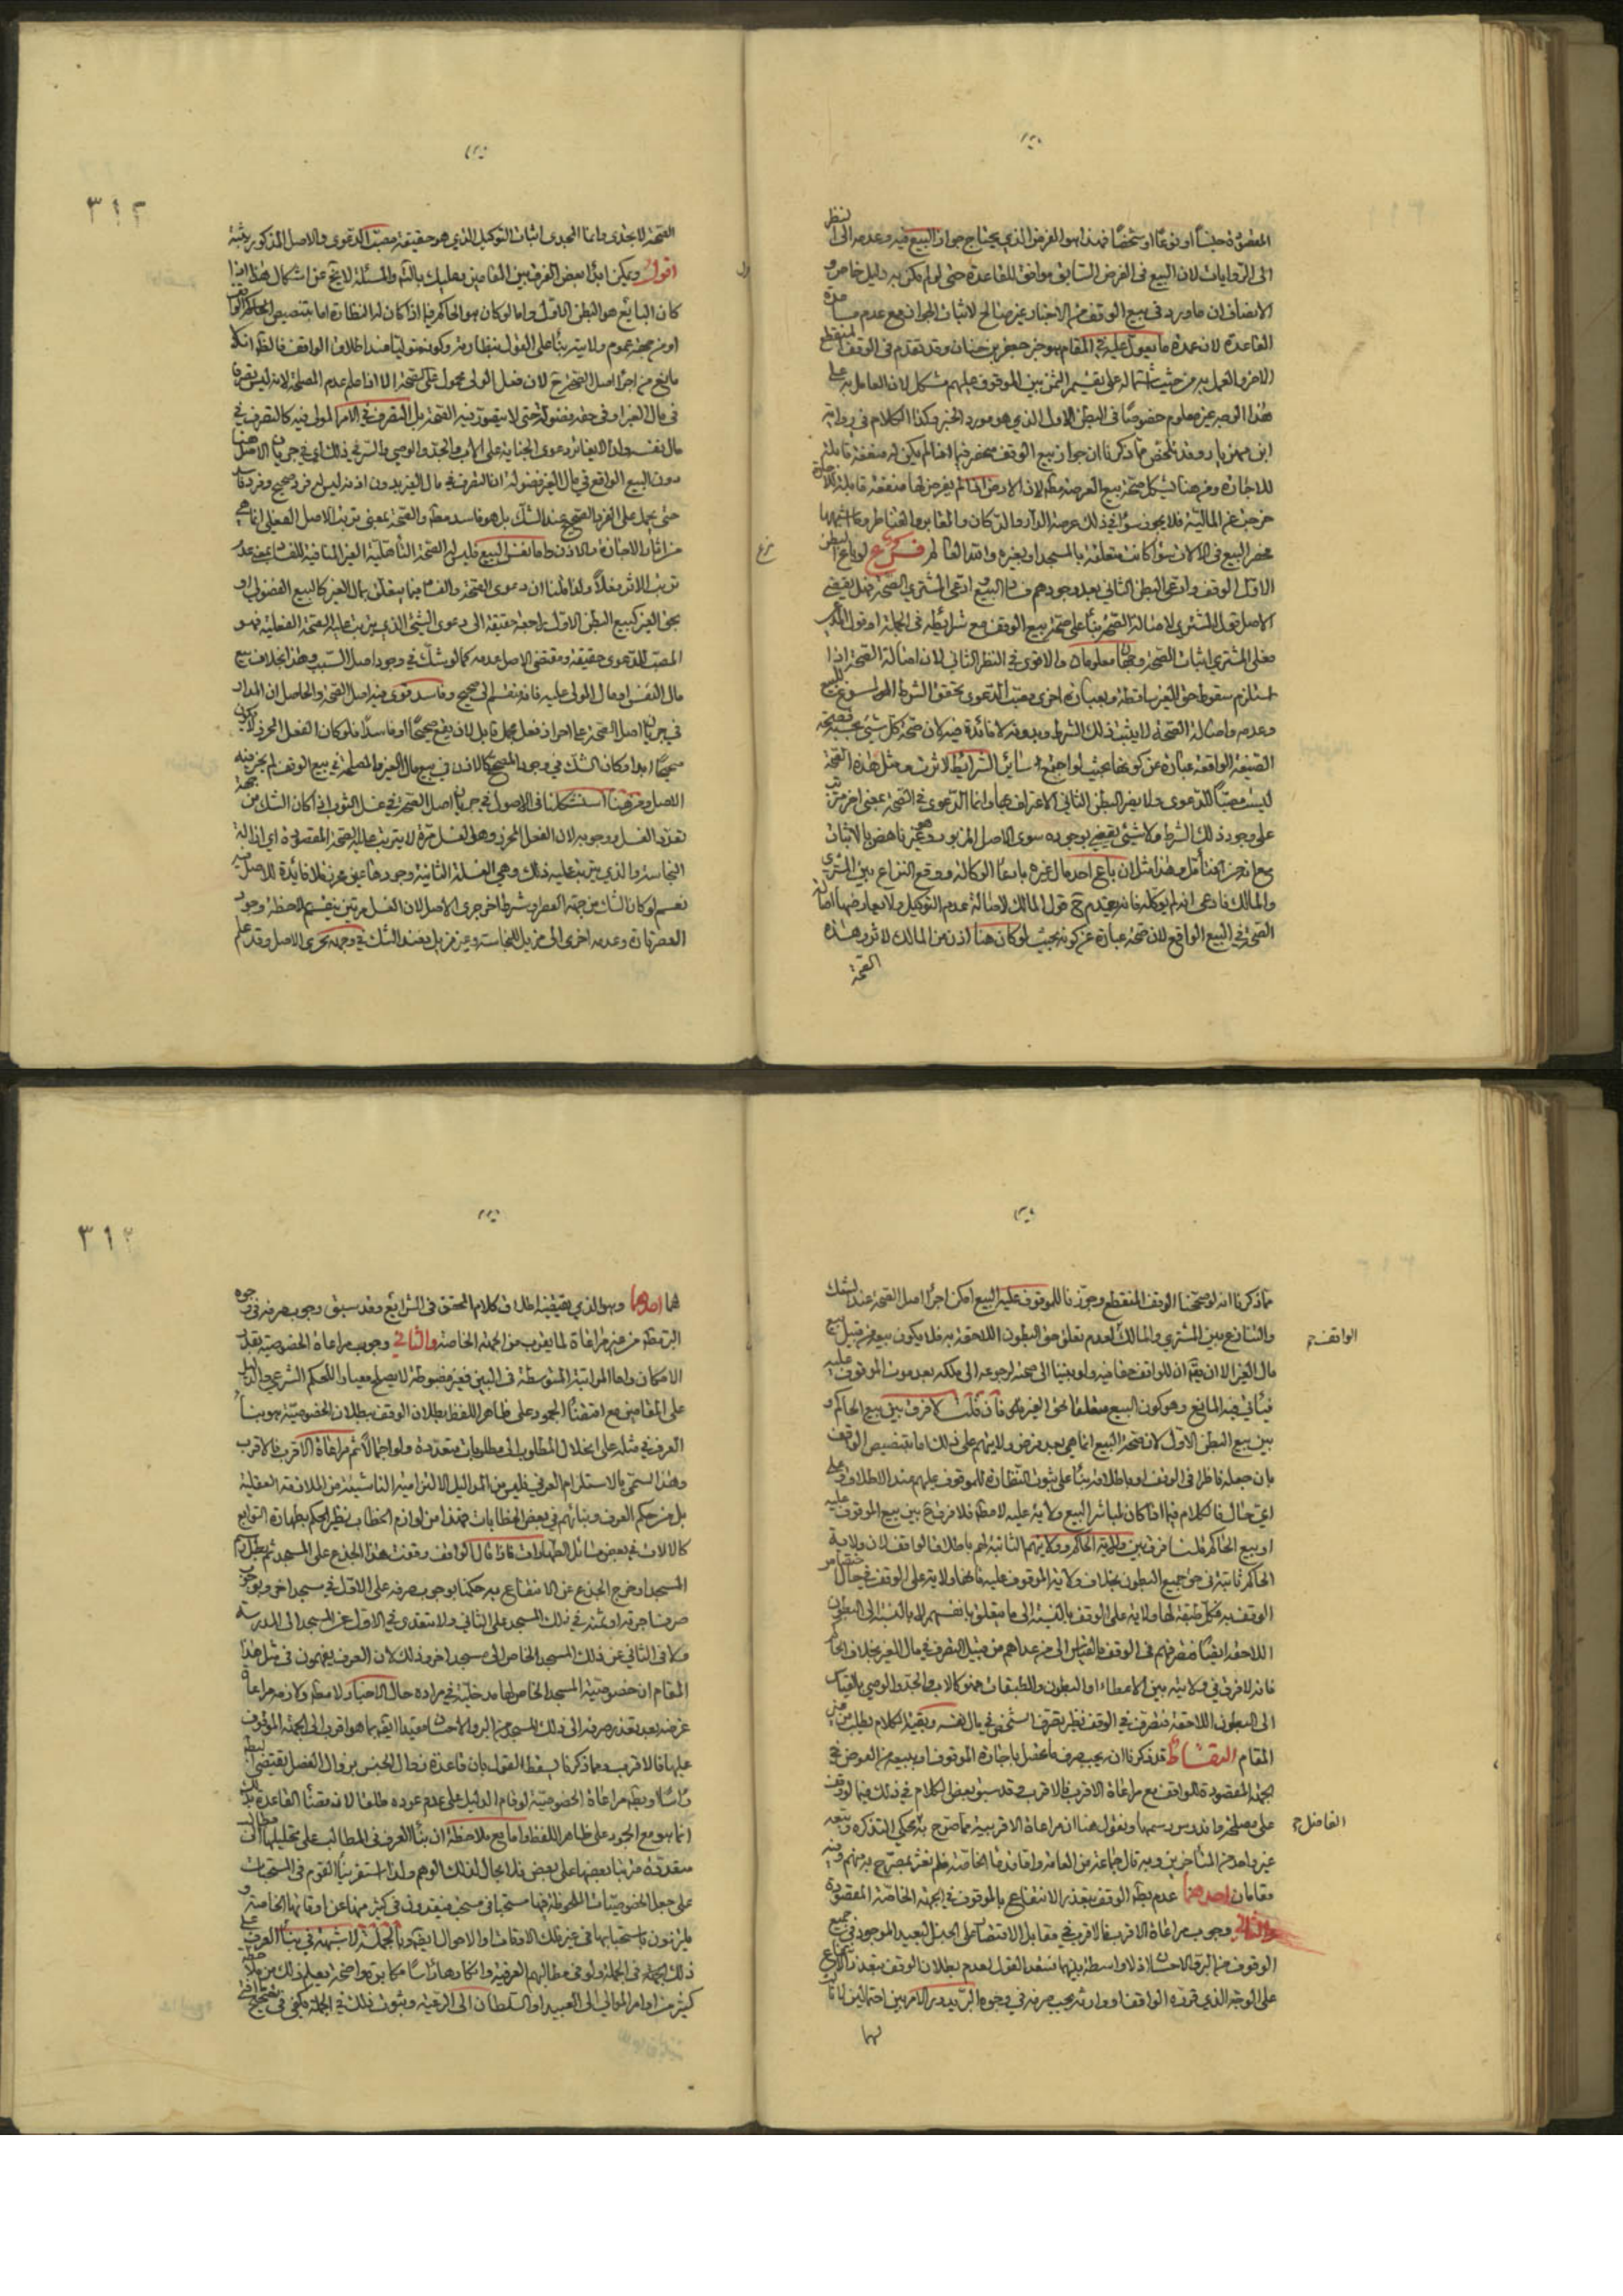 المقصودة جنسًا او نوعًا او شخصًا فهذا هو الفرض الذي يحتاج جواز البيع فيه وعدمه الى النظر
الى الروايات لان البيع فى الفرض السابق موافق للقاعدة حتى لو لم يكن به دليل خاص و
الانصاف ان ما ورد فى بيع الوقف من الاخبار غير صالح لاثبات الجواز مع عدم مساعدة
القاعدة لان عمدة ما يعول عليه فى المقام هو خبر جعفر بن حنان وقد تقدم فى الوقف المنقطع
الاخر والعمل به من حيث اشتماله على تقسيم الثمن بين الموقوف عليهم مشكل لان العامل به على
هذا الوجه غير معلوم خصوصًا فى البطن الاول الذي هو مورد الخبر وكذا الكلام فى رواية
ابن مهزيار وقد تلخص مما ذكرنا ان جواز بيع الوقف منحصر فيما اذا لم يكن له منفعة قابلة
للاجارة ومن هنا يشكل صحة بيع العرصة مطلقا لان الارض لم يفرض لها منفعة قابلة للاجارة
الاول الوقف وادعى البطن الثاني بعد وجودهم فساد البيع وادعى المشتري الصحة فهل يقتضى
الاصل تقديم قول المشتري لاصالة الصحة بناء على صحة بيع الوقف مع شرائطه فى الجملة او قول المنكر
فعلى المشتري اثبات الصحة وجهان معلومان والاقوى فى النظر الثاني لان اصالة الصحة اذا
استلزم سقوط حق للغير ساقطة وبعبارة اخرى مصب الدعوى تحقق الشرط المسوغ للبيع
وعدمه واصالة الصحة لا يثبت ذلك الشرط وبدونه لا فائدة فيه لان صحة كل شئ بحسبه فصحة
الصيغة الواقعة عبارة عن كونها بحيث لو اجتمع سائر الشرائط لاثرت ومثل هذه الصحة
ليست مصبًا للدعوى ولا يضر البطن الثاني الاعتراف بها وانما الدعوى فى الصحة بمعنى اخر مترتب
على وجود ذلك الشرط ولا شئ يقضى بوجوده سوى الاصل المزبور وهو غير ناهض بالاثبات
والمالك فادعى انه لم يوكله فانه يقدم ح قول المالك لاصالة عدم التوكيل ولا يعارضها اصالة
الصحة فى البيع الواقع لان صحته عبارة عن كونه بحيث لو كان هنا اذن من المالك لاثر وهذه
الصحة
٣١٢
الصحة لا يجدى وانما المجدى اثبات التوكيل الذي هو حقيقة مصب الدعوى والاصل المذكور
اقول ويمكن ابداء بعض الفرق بين المقامين فعليك بالتأمل والمسئلة لا تخ عن اشكال هذا اذا
كان البايع هو البطن الاول واما لو كان هو الحاكم فيما اذا كان له النظارة اما بتنصيص الواقف
مانع من اجراء اصل الصحة ح لان فعل الولى محمول على الصحة الا اذا علم عدم المصلحة لانه ليس تصرفا
فى مال الغير او فى حقه فضولة حتى لا يتصور فيه الصحة بل التصرف فى الامر المولى فيه كالتصرف فى
دون البيع الواقع فى مال الغير فضولة اذ التصرف فى مال الغير بدون اذنه ليس له فرد صحيح وفرد فاسد
حتى يحمل على الفرد الصحيح عند الشك بل هو فاسد مطلقا والصحة بمعنى ترتب الاصل الفعلى انما هى
من اثار الاجازة والاذن واما نفس البيع فليس له الا الصحة التأهلية الغير المنافية للفساد بمعنى عدم
ترتب الاثر فعلاً ولذا قلنا ان دعوى الصحة والفساد فيما يتعلق بمال الغير كالبيع الفضولي او
بحق الغير كبيع البطن الاول راجعة حقيقة الى دعوى الشئ الذي يترتب عليه الصحة الفعلية فهو
المصب للدعوى حقيقة ومقتضى الاصل عدمه كما لو شك فى وجود اصل السبب وهذا بخلاف بيع
مال النفس او مال المولى عليه فانه ينقسم الى صحيح وفاسد فيجري فيه اصل الصحة والحاصل ان المدار
فى جريان اصل الصحة على احراز فعل مجمل قابل لان يقع صحيحًا او فاسدًا فلو كان الفعل المحرز لا يكون
صحيحًا ابدا وكان الشك فى وجود المصحح كالاذن فى بيع مال الغير والمصلحة فى بيع الوقف لم يجر فيه
الاصل ومن هنا استشكلنا فى الاصول فى جريان اصل الصحة فى غسل الثوب اذا كان الشك من جهة
تعدد الغسل ووجوبه لان الفعل المحرز وهو الغسل مرة لا يترتب عليه الصحة المقصودة اى ازالة
النجاسة والذي يترتب عليه ذلك وهى الغسلة الثانية وجودها غير محرز فلا فائدة للاصل فيه
نعم لو كان الشك من جهة العصر او شرط اخر جرى الاصل لان الغسل مرتين ينقسم بملاحظة وجود
العصر تارة وعدمه اخرى الى مزيل للنجاسة وغير مزيل فعند الشك فى وجهه يجرى الاصل وقد علم
مما ذكرنا انه لو صححنا الوقف المنقطع وجوزنا للموقوف عليه البيع امكن اجراء اصل الصحة عند الشك
والتنازع بين المشتري والمالك لعدم تعلق حق البطون اللاحقة به فلا يكون بيعه من قبيل بيع
الواقف
مال الغير الا ان يقال ان للواقف حقا فيه ولو بقينا الى صحة رجوعه الى ملكه بعد موت الموقوف عليه
فيأتى فيه المانع وهو كون البيع متعلقا لحق الغير فان قلت لا فرق بين بيع الحاكم و
بين بيع البطن الاول لان صحة البيع انما هى بعد فرض ولايتهم على ذلك اما بتنصيص الواقف
بان جعله ناظرا فى الوقف او باطلاقه بناء على ثبوت النظارة للموقوف عليهم عند الاطلاق وعلى
اي حال فالكلام فيما اذا كان لمباشر البيع ولاية عليه لا مطلقا فلا فرق ح بين بيع الموقوف عليه
او بيع الحاكم قلنا فرق بين ولاية الحاكم وولايتهم الثابتة لهم باطلاق الواقف لان ولاية
الحاكم ثابتة فى حق جميع البطون بخلاف ولاية الموقوف عليه فانها ولاية على الوقف فى حال
الوقفية فكل طبقة لها ولاية على الوقف بالنسبة الى ما يتعلق بانفسهم لا بالنسبة الى البطون
اللاحقة ايضًا فتصرفهم فى الوقف بالقياس الى من عداهم من قبيل التصرف فى مال الغير بخلاف الحاكم
فانه لا فرق فى ولايته بين الاعطاء او البطون والطبقات فهو كالاب والجد والوصي بالقياس
الى البطون اللاحقة فتصرفه فى الوقف نظير تصرف الشخص فى مال نفسه وبقية الكلام يطلب من غير
المقام التقاط قد ذكرنا ان يجب صرف ما يحصل باجارة الموقوف او ببيعه من العوض فى
الجهة المقصودة للواقف مع مراعاة الاقرب فالاقرب وقد سبق بعض الكلام فى ذلك فيما لو وقف
على مصلحة فاندرس رسمها ونقول هنا ان مراعاة الاقربية مما صرح به محكى التذكرة وتبعه
الفاضل
غير واحد من المتأخرين وبه قال جماعة من العامة واما قدماء الخاصة فلم نعثر بمصرح به منهم وفيه
مقامان احدهما عدم بطلان الوقف بتعذر الانتفاع بالموقوف فى الجهة الخاصة المقصودة
والثانى وجوب مراعاة الاقرب فالاقرب فى مقابل الاقتصار على الجنس البعيد الموجود فى جميع
الوقوف من البر والاحسان اذ لا واسطة بينهما فبعد القول بعدم بطلان الوقف بتعذر الانتفاع
على الوجه الذي قرره الواقف او وارثه يجب صرفه فى وجوه البر يدور الامر بين احتمالين لا ثالث
لهما
٣١٣
هما احدهما وهو الذي يقتضيه اطلاق كلام المحقق فى الشرايع وقد سبق وجوب صرفه فى وجوه
البر مطلقا من غير مراعاة لما يقرب من الجهة الخاصة والثانى وجوب مراعاة الخصوصية بقدر
الامكان واما المراتب المتوسطة فى البين فغير مضبوطة لا يصلح معيارا للحكم الشرعى والدليل
على المقامين مع اقتضاء الجمود على ظاهر اللفظ بطلان الوقف ببطلان الخصوصية هو بناء
العرف فى مثله على انحلال المطلوب الى مطلوبات متعددة ولو اجمالاً ثم مراعاة الاقرب فالاقرب
وهذا يسمى بالاستلزام العرفى فليس من المداليل الالتزامية الناشئة من الملازمة العقلية
بل من حكم العرف وبنائهم فى بعض الخطابات فهذا من لوازم الخطاب نظير الحكم بطهارة التوابع
كالالات فى بعض مسائل الطهارات فاذا قال الواقف وقفت هذا الجذع على المسجد ثم بطل رسم
المسجد او خرج الجذع عن الانتفاع به حكمنا بوجوب صرفه على الاول فى مسجد اخر وبوجوب
صرف اجرته او ثمنه فى ذلك المسجد على الثانى ولا نتعدى فى الاول عن المسجد الى المدرسة
ولا فى الثانى عن ذلك المسجد الخاص الى مسجد اخر وذلك لان العرف يفهمون فى مثل هذا
المقام ان خصوصية المسجد الخاص لها مدخلية فى مراده حال الاختيار لا مطلقا ولازمه مراعاة
غرضه بعد تعذر صرفه الى ذلك المسجد من البر والاحسان مقيدا ايضًا بما هو اقرب الى الجهة الموقوف
عليها فالاقرب وبما ذكرنا يسقط القول بان قاعدة زوال الجنس بزوال الفصل يقتضى البطلان
رأسًا ويظهر مراعاة الخصوصية لو قام الدليل على عدم عوده ملكا لان مقتضى القاعدة ذلك
انما هو مع الجمود على ظاهر اللفظ واما مع ملاحظة ان بناء العرف فى المطالب على تحليلها الى مطالب
متعددة مترتبا بعضها على بعض فلا مجال لذلك الوهم ولذا استقر بناء القوم فى المستحبات
على جعل الخصوصيات الملحوظة فيها مستحبا فى مستحب فيتعدون فى كثير منها عن اوقاتها الخاصة و
يلتزمون باستحبابها فى غير تلك الاوقات والاحوال وبالجملة لا شبهة فى بناء العرف على
ذلك الجملة فى الجملة ولو فى مطالبهم العرفية وانكارها رأسًا مكابرة واضحة يعلم ذلك من ملاحظة
كثير من اوامر الموالى الى العبيد او السلطان الى الرعية وثبوت ذلك فى الجملة يكفى فى تصحيح